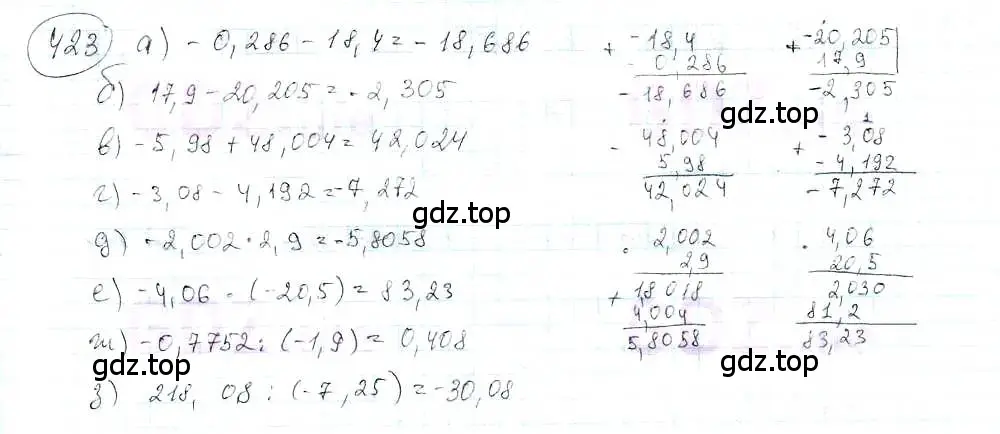 423 а) - 0,286 - 18,4 = - 18,686
б) 17,9 - 20,205 = - 2,305
в) - 5,98 + 48,004 = 42,024
г) - 3,08 - 4,192 = -7,272
д) - 2,002 · 2,9 = -5,8058
е) - 4,06 · (-20,5) = 83,23
ж) - 0,7752 : (-1,9) = 0,408
з) 218,08 : (-7,25) = -30,08
+ -18,4
- 0,286
- 18,686
+ -20,205
17,9
-2,305
- 48,004
5,98
42,024
+ - 3,08
- 4,192
- 7,272
· 2,002
2,9
+ 18018
4,004
5,8058
· 4,06
20,5
2,030
81,2
83,23
gdz.top
gdz.top
gdz.top
gdz.top
gdz.top